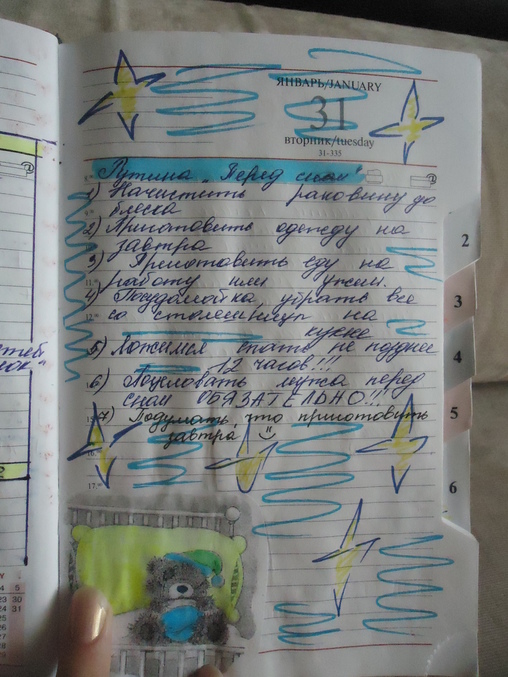 ЯНВАРЬ/JANUARY
31
вторник/tuesday
31-335
Рутина "Перед сном"
1) Начистить раковину до
блеска
2) Приготовить одежду на
завтра
3) Приготовить еду на
работу или ужин.
4) Посудомойка, убрать все
со столешницы на
кухне
5) Ложимся спать не позднее
12 часов!!!
6) Поцеловать мужа перед
сном ОБЯЗАТЕЛЬНО!!!
7) Подумать, что приготовить
завтра
2
3
4
5
6